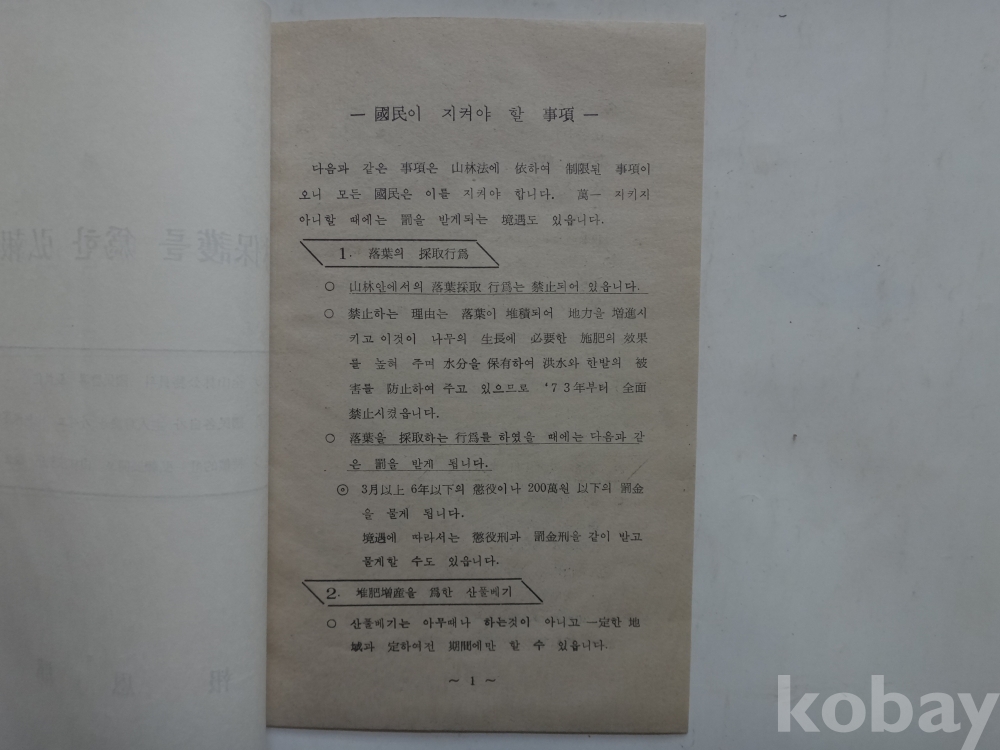 — 國民이 지켜야 할 事項 —
다음과 같은 事項은 山林法에 依하여 制限된 事項이
오니 모든 國民은 이를 지켜야 합니다. 萬一 지키지
아니할 때에는 罰을 받게되는 境遇도 있읍니다.
1. 落葉의 採取行爲
○ 山林안에서의 落葉採取 行爲는 禁止되어 있읍니다.
○ 禁止하는 理由는 落葉이 堆積되어 地力을 增進시
키고 이것이 나무의 生長에 必要한 施肥의 效果
를 높혀 주며 水分을 保有하여 洪水와 한발의 被
害를 防止하여 주고 있으므로 '73年부터 全面
禁止시켰읍니다.
○ 落葉을 採取하는 行爲를 하였을 때에는 다음과 같
은 罰을 받게 됩니다.
◎ 3月以上 6年以下의 懲役이나 200萬원 以下의 罰金
을 물게 됩니다.
境遇에 따라서는 懲役刑과 罰金刑을 같이 받고
물게할 수도 있읍니다.
2. 堆肥增産을 爲한 산풀베기
○ 산풀베기는 아무때나 하는것이 아니고 一定한 地
域과 定하여진 期間에만 할 수 있읍니다.
~ 1 ~
kobay